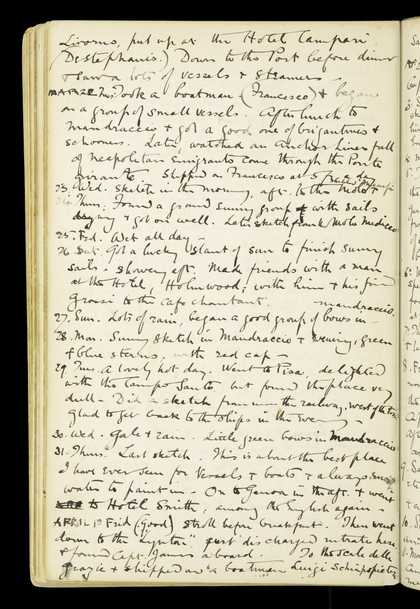 Livorno, put up at the Hotel Campari
(De Stephanis.) Down to the Port before dinner
& saw a lots of vessels & steamers.
MAR 22 Thu. Took a boatman (Francesco) & began
on a group of small vessels. After lunch to
Mandraccio & got a good one of brigantines &
schooners. Later, watched an Anchor Liner full
of Neapolitan emigrants come through the Ponte
girante. Shipped on Francesco at 5
23. Wed. Sketch in the morning, aft. to the Molo &
Thur. Found a grand sunny group of with sails
& got on well. Late sketch from Molo Mediceo
25. Frd. Wet all day —
26 Sat. Got a lucky slant of sun to finish sunny
sails. Showery aft. Made friends with a man
at the Hotel, Holmwood; with him & his
Grossi to the Cafe chantant. — Mandraccio.
27. Sun. Lots of rain, began a good group of bows in
28. Mon. Sunny sketch in Mandraccio & evening, green
& blue sterns, with red cap —
29. Tues. A lovely hot day. Went to Pisa, delighted
with the Campo Santo but found the place very
dull — Did a sketch from the railway, west of the
glad to get back to the ships in the evening —
30. Wed. Gale & rain. Little green bows in Mandraccio
31. Thurs. Last sketch. This is about the best place
I have ever seen for vessels & boats & always smooth
water to paint in — On to Genoa in the aft. & went
to Hotel Smith, among the English again.
APRIL 1st Frid (Good) stroll before breakfast. Then went
down to the "Lynton" just discharged nitrate here
& found Capt. James aboard. To the Scale delle
Grazie & shipped on a boatman Luigi Schiapp